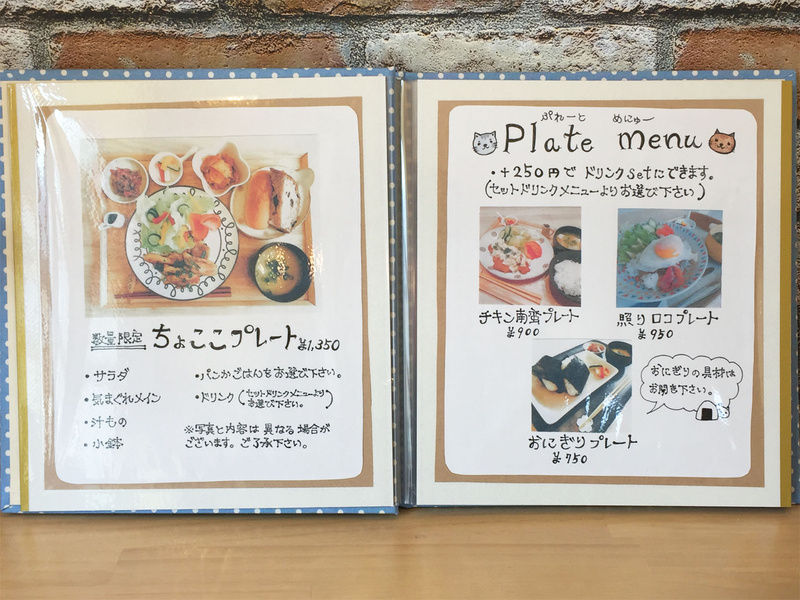 数量限定 ちょここプレート ¥1,350
・サラダ
・気まぐれメイン
・汁もの
・小鉢
・パンかごはんをお選び下さい。
・ドリンク(セットドリンクメニューより
お選び下さい。)
※写真と内容は異なる場合が
ございます。ご了承下さい。
ぷれーと めにゅー
Plate menu
・+250円でドリンクsetにできます。
(セットドリンクメニューよりお選び下さい)
チキン南蛮プレート
¥900
照りロコプレート
¥950
おにぎりの具材は
お聞き下さい。
おにぎりプレート
¥750